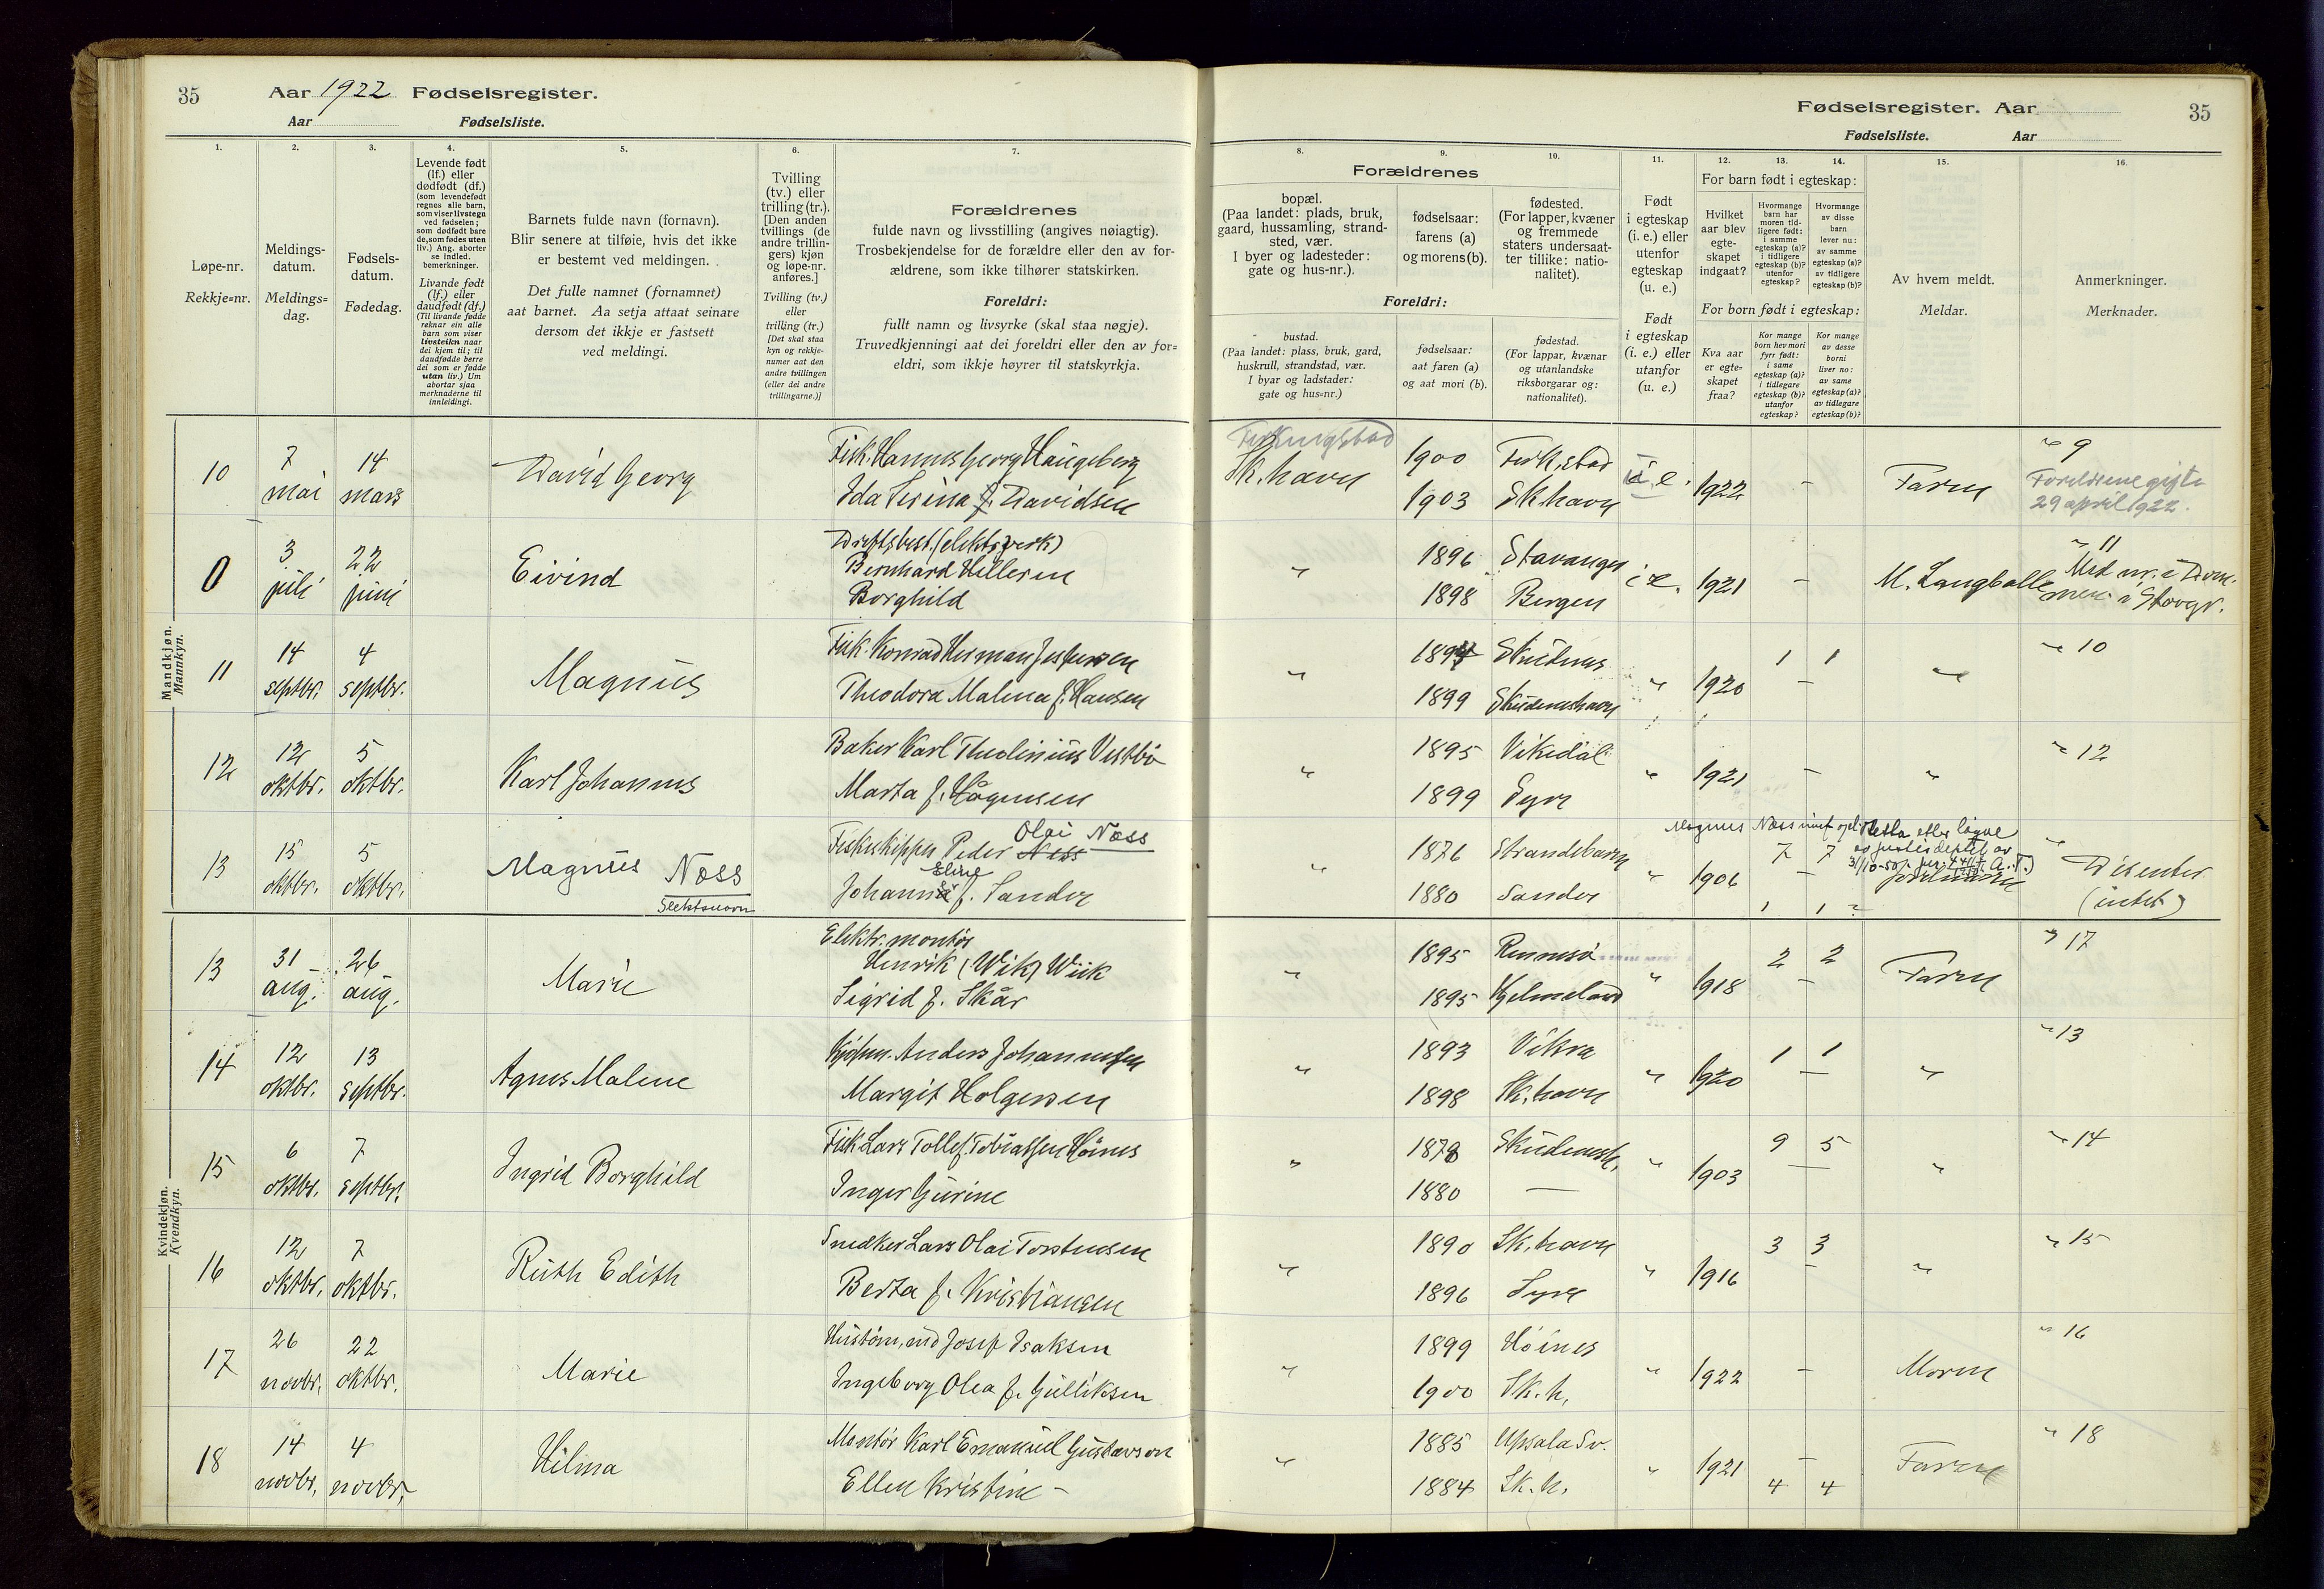 35 Aar 1922 Fødselsregister.
Aar Fødselsliste.
Fødselsregister. Aar 35
Fødselsliste. Aar
1. 2. 3. 4. 5. 6. 7.
Løpe-nr.
Rekkje=nr.
Meldings-
datum.
Meldings=
dag.
Fødsels-
datum.
Fødedag.
Levende født
(lf.) eller
dødfødt (df.)
(som levendefødt
regnes alle barn,
som viser livstegn
ved fødselen;
som dødfødt bare
de, som fødes uten
liv.) Ang. aborter
se indled.
bemerkninger.
Livande født
(lf.) eller
daudfødt (df.)
(Til livande fødde
reknar ein alle
barn som viser
livsteikn naar
dei kjem til; til
daudfødde berre
dei som er fødde
utan liv.) Um
abortar sjaa
merknaderne til
innleidingi.
Barnets fulde navn (fornavn).
Blir senere at tilføie, hvis det ikke
er bestemt ved meldingen.
Det fulle namnet (fornamnet)
aat barnet. Aa setja attaat seinare
dersom det ikkje er fastsett
ved meldingi.
Tvilling
(tv.) eller
trilling (tr.).
[Den anden
tvillings (de
andre trillin-
gers) kjøn
og løpe-nr.
anføres.]
Tvilling (tv.)
eller
trilling (tr.)
[Det skal staa
kyn og rekkje-
numer aat den
andre tvillingen
(eller dei andre
trillingarne.)]
Forældrenes
fulde navn og livsstilling (angives nøiagtig).
Trosbekjendelse for de forældre eller den av for-
ældrene, som ikke tilhører statskirken.
Foreldri:
fullt namn og livsyrke (skal staa nøgje).
Truvedkjenningi aat dei foreldri eller den av for=
eldri, som ikkje høyrer til statskyrkja.
8. 9. 10. 11. 12. 13. 14. 15. 16.
Forældrenes
bopæl.
(Paa landet: plads, bruk,
gaard, hussamling, strand-
sted, vær.
I byer og ladesteder:
gate og hus-nr.).
fødselsaar:
farens (a)
og morens (b).
fødested.
(For lapper, kvæner
og fremmede
staters undersaat-
ter tillike: natio-
nalitet).
Foreldri:
bustad.
(Paa landet: plass, bruk, gard,
huskrull, strandstad, vær.
I byar og ladstader:
gate og hus=nr.)
fødselsaar:
aat faren (a)
og aat mori (b).
fødestad.
(For lappar, kvænar
og utanlandske
riksborgarar og:
nationalitet).
Født
i egteskap
(i. e.) eller
utenfor
egteskap
(u. e.)
Født
i egteskap
(i. e.) eller
utanfor
(u. e.)
For barn født i egteskap:
Hvilket
aar blev
egte-
skapet
indgaat?
Hvormange
barn har
moren tid-
ligere født:
i samme
egteskap (a)?
i tidligere
egteskap (b)?
utenfor
egteskap?
Hvormange
av disse
barn
lever nu:
av samme
egteskap (a)?
av tidligere
egteskap (b)?
For born født i egteskap:
Kva aar
er egte=
skapet
fraa?
Kor mange
born hev mori
fyrr født:
i same
egteskap (a)?
i tidlegare
egteskap (b)?
utanfor
egteskap?
Kor mange
av desse
borni
liver no:
av same
egteskap (a)?
av tidlegare
egteskap (b)?
Av hvem meldt.
Meldar.
Anmerkninger.
Merknader.
Mandkjøn.
Mannkyn.
10 7 mai 14 mars David Georg
Fisk. Hannes Georg Haugeberg
Ida Serina f. Davidsen
Sk.havn
1900 Ferk.stad
1903 Sk.havn
i. e. 1922 - Faren
" 9
Foreldrene gift
29 april 1922.
0 3 juli 22 juni Eivind
Driftsbest. (elektr. verk)
Bernhard Hilleren
Borghild
" 1896 Stavanger
1898 Bergen
i. e. 1921 - M. Langballe
" 11
11 14 septbr. 4 septbr. Magnus
Fisk. Konrad Herman Jespersen
Theodora Malena f. Hansen
" 1894 Skudenes
1899 Skudeneshavn
" 1920 1 1 - "
" 10
12 12 oktbr. 5 oktbr. Karl Johannes
Baker Karl Theolinius Vestbø
Marta f. Hågensen
" 1895 Vikedal
1899 Syre
" 1921 - "
" 12
13 15 oktbr. 5 oktbr. Magnus Næss
Slektsnavn
Olai Næss
Fiskeskipper Peder Ness
Eline
Johanna f. Sandes
" 1876 Strandebarm
1880 Sandes
" 1906 7 7 -
Magnus Næss
Disenter
(intet)
Kvindekjøn.
Kvendkyn.
1 1 ?
13 31 aug. 26 aug. Marie
Elektr. montør
Henrik (Wik) Wiik
Sigrid f. Skår
" 1895 Rennesø
1895 Hjelmeland
" 1918 2 2 - Faren
" 17
14 12 oktbr. 13 septbr. Agnes Malene
Kjøpm. Anders Johannesen
Margit Holgersen
" 1893 Vikra
1898 Sk.havn
" 1920 1 1 - "
" 13
15 6 oktbr. 7 septbr. Ingrid Borghild
Fisk. Lars Tollef Tobiassen Hønes
Inger Gurine
" 1878 Skudenesh.
1880 —
" 1903 9 5 - "
" 14
16 12 oktbr. 7 oktbr. Ruth Edith
Snedker Lars Olai Torstensen
Berta f. Kristiansen
" 1890 Sk.havn
1896 Syre
" 1916 3 3 - "
" 15
17 26 novbr. 22 oktbr. Marie
Josef Isaksen
Ingeborg Olea f. Gulliksen
" 1899 Høines
1900 Sk.h.
" 1922 - Moren
" 16
18 14 novbr. 4 novbr. Hilma
Montør Karl Emanuel Gustavson
Ellen Kristine -
" 1885 Upsala Sv.
1884 Sk.h.
" 1921 - 4 4 Faren
" 18